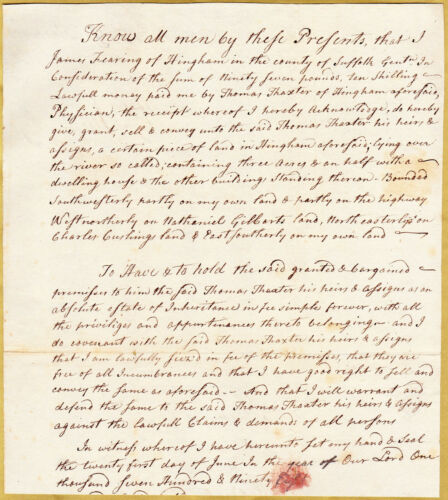 Know all men by these Presents, that I
James Fearing of Hingham in the county of Suffolk Gentn. In
Consideration of the sum of ninety seven pounds, ten Shilling
Lawfull money paid me by Thomas Thaxter of Hingham aforesaid,
Physician, the receipt whereof I hereby Acknowledge, do hereby
give, grant, sell & convey unto the said Thomas Thaxter his heirs &
assigns, a certain piece of land in Hingham aforesaid; lying over
the river so called; containing three Acres & an half with a
dwelling house & the other buildings Standing thereon. Bounded
Southwesterly partly on my own land & partly on the highway
Westnortherly on Nathaniel Gilberts land, Northeasterly on
Charles Cushing land & Eastsoutherly on my own land
To Have & to hold the said granted & bargained
premisses to him the said Thomas Thaxter his heirs & assigns as an
absolute estate of Inheritance in fee simple forever, with all
the priviliges and appurtenances thereto belonging. and I
do covenant with the said Thomas Thaxter his heirs & assigns
that I am lawfully seiz'd in fee of the premisses, that they are
free of all Incumbrances and that I have good right to sell and
convey the same as aforesaid - And that I will warrant and
defend the same to the said Thomas Thaxter his heirs & assigns
against the lawfull Claims & demands of all persons
In witness whereof I have hereunto set my hand & Seal
the twenty first day of June In the year of Our Lord One
thousand seven Hundred & Ninety